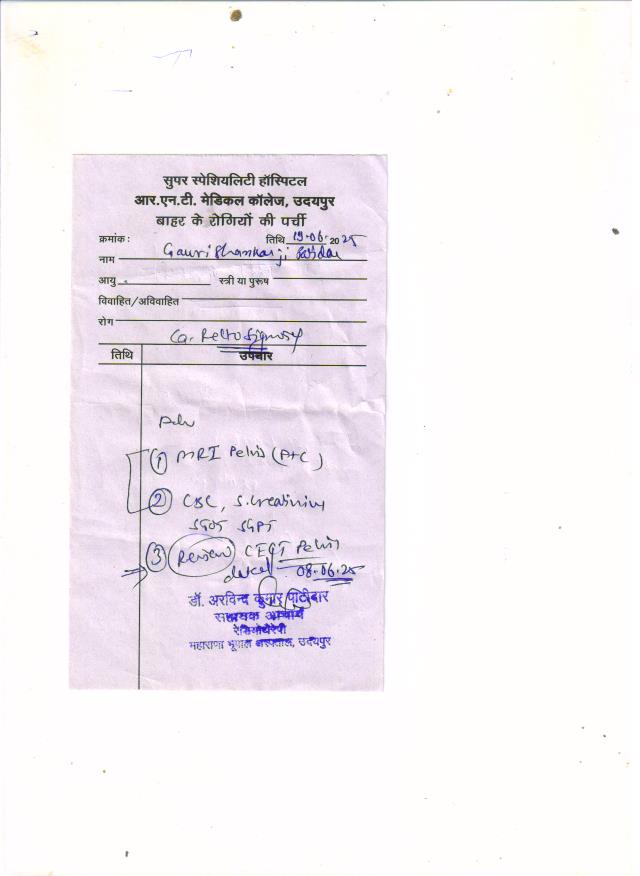 सुपर स्पेशियलिटी हॉस्पिटल
आर.एन.टी. मेडिकल कॉलेज, उदयपुर
बाहर के रोगियों की पर्ची
क्रमांक : तिथि 19-06-2025
नाम Gaurishankarji
आयु स्त्री या पुरूष
विवाहित/अविवाहित
रोग
Ca. Rectosigmoid
तिथि उपचार
Adv
① MRI Pelvis (P+C)
② CBC, S. Creatinine
SGOT SGPT
③ Review CECT Pelvis
dated 08-06-25
डॉ. अरविन्द कुमार पाटीदार
सहायक आचार्य
रेडियोथेरेपी
महाराणा भूपाल अस्पताल, उदयपुर